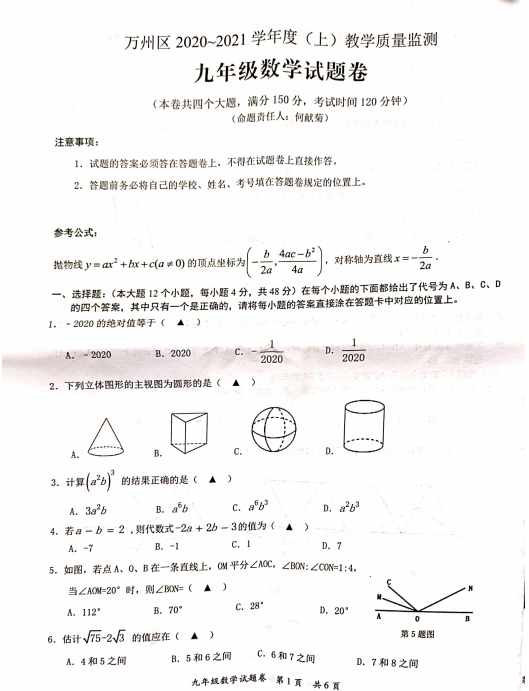 万州区 2020~2021 学年度（上）教学质量监测
九年级数学试题卷
（本卷共四个大题，满分 150 分，考试时间 120 分钟）
（命题责任人：何献菊）
注意事项：
1．试题的答案必须答在答题卷上，不得在试题卷上直接作答。
2．答题前务必将自己的学校、姓名、考号填在答题卷规定的位置上。
参考公式：
抛物线 y = ax² + bx + c(a ≠ 0) 的顶点坐标为 (-b/2a, (4ac-b²)/4a)，对称轴为直线 x = -b/2a．
一、选择题：（本大题 12 个小题，每小题 4 分，共 48 分）在每个小题的下面都给出了代号为 A、B、C、D
的四个答案，其中只有一个是正确的，请将每小题的答案直接涂在答题卡中对应的位置上。
1．﹣2020 的绝对值等于（ ▲ ）
A．﹣2020 B．2020 C．-1/2020 D．1/2020
2．下列立体图形的主视图为圆形的是（ ▲ ）
A． B． C． D．
3．计算(a²b)³ 的结果正确的是（ ▲ ）
A．3a²b B．a⁶b C．a⁶b³ D．a²b³
4．若a − b = 2 ，则代数式-2a + 2b − 3的值为（ ▲ ）
A．-7 B．-1 C．1 D．7
5．如图，若点 A、O、B 在一条直线上，OM 平分∠AOC，∠BON:∠CON=1:4，
当∠AOM=20° 时，则∠BON=（ ▲ ）
A．112° B．70° C．28° D．20°
C
M
N
A O B
第 5 题图
6．估计√75-2√3 的值应在（ ▲ ）
A．4 和 5 之间 B．5 和 6 之间 C．6 和 7 之间 D．7 和 8 之间
九年级数学试题卷 第 1 页 共 6 页